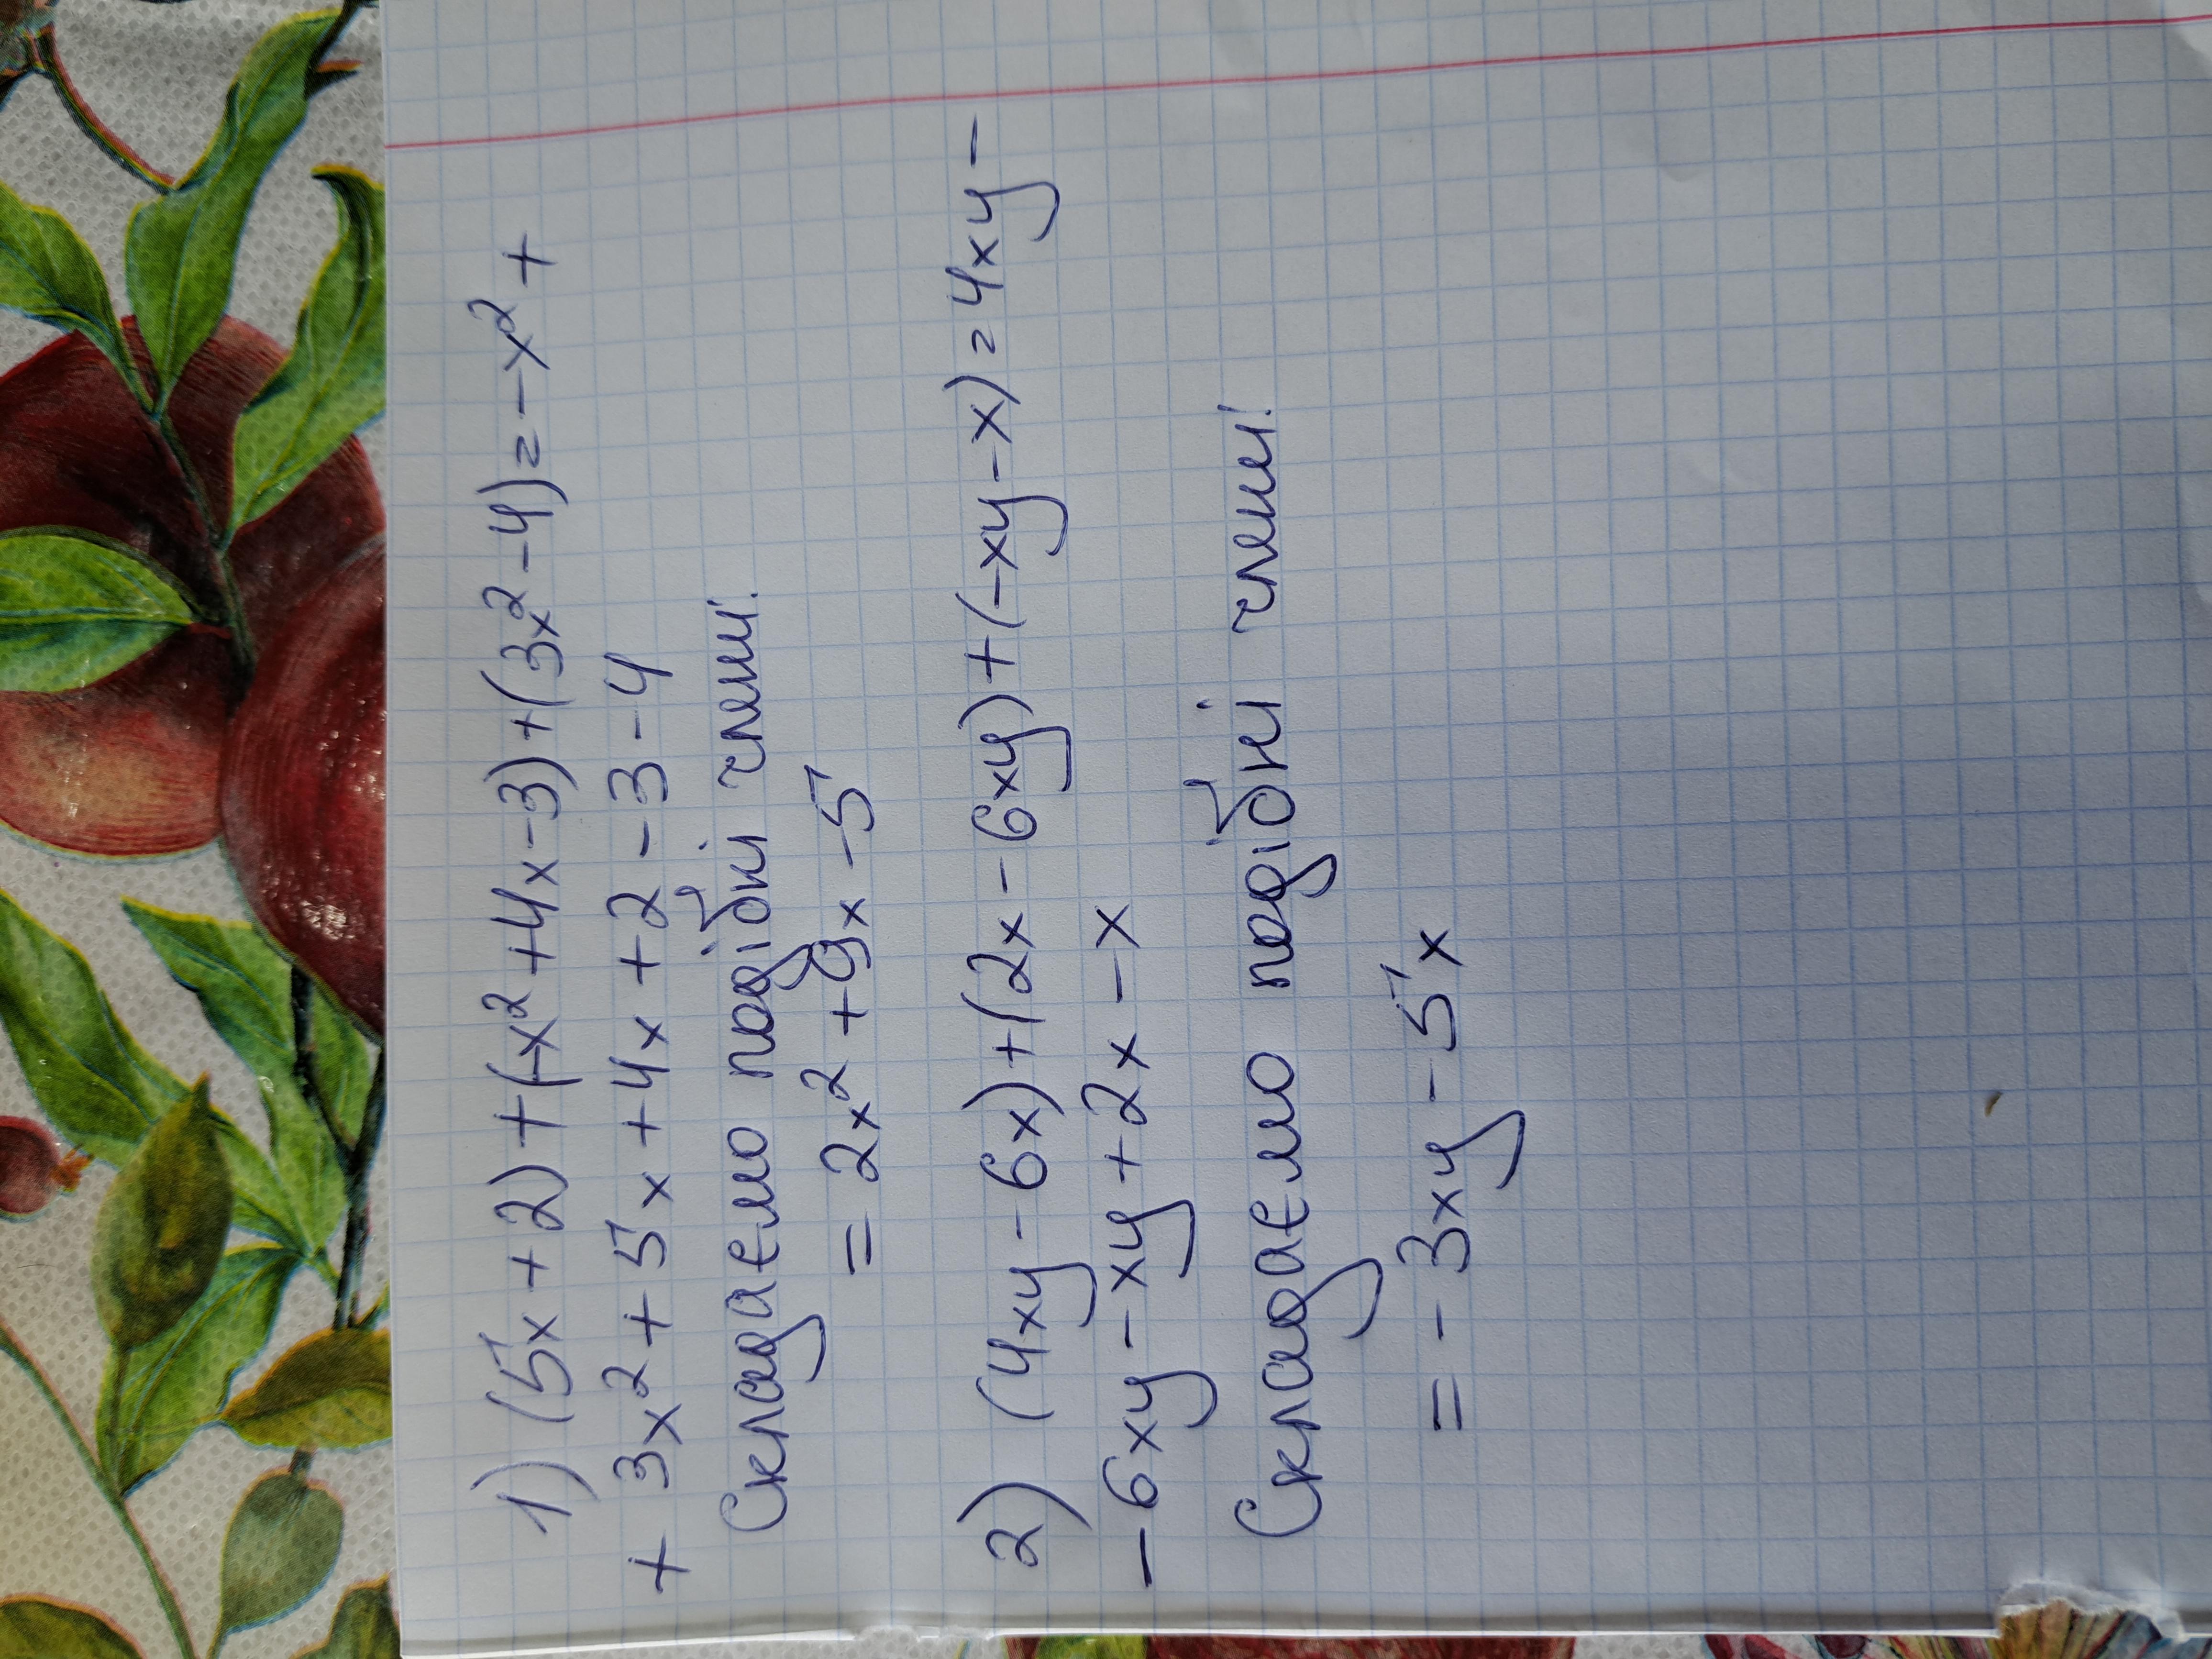 1) (5x+2)+(-x²+4x-3)+(3x²-4)=-x²+
+3x²+5x+4x+2-3-4
Складаємо подібні члени:
=2x²+9x-5
2) (4xy-6x)+(2x-6xy)+(-xy-x)=4xy-
-6xy-xy+2x-x
Складаємо подібні члени:
=-3xy-5x